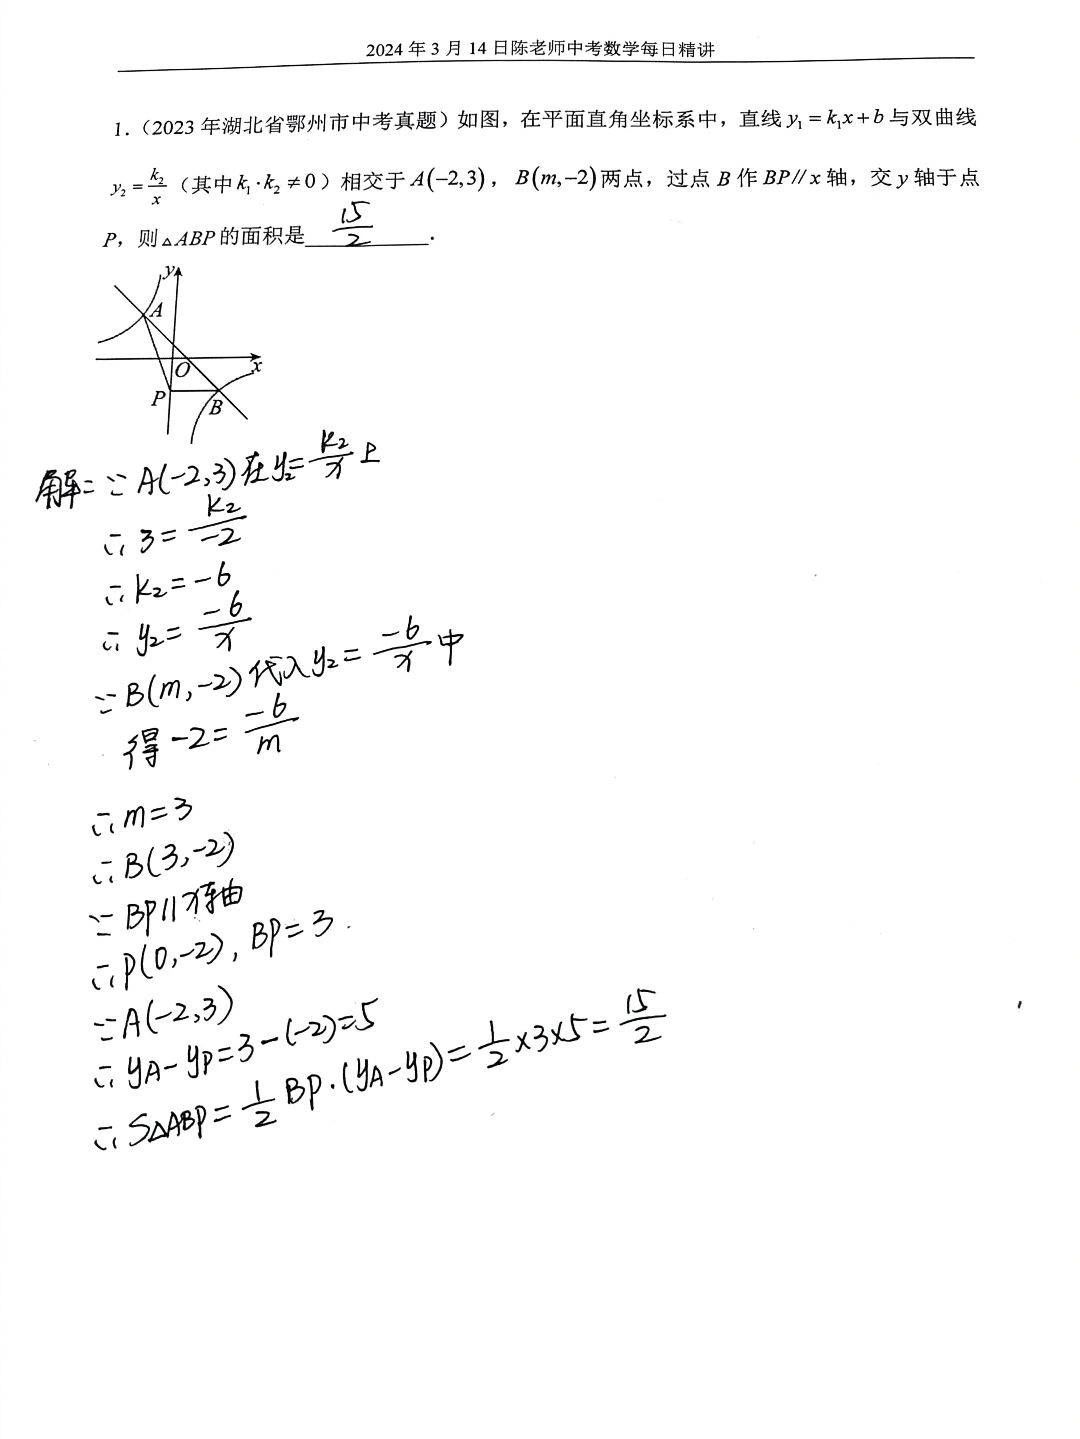 2024年3月14日陈老师中考数学每日精讲
1.（2023年湖北省鄂州市中考真题）如图，在平面直角坐标系中，直线 y₁=k₁x+b 与双曲线
y₂=k₂/x（其中 k₁·k₂≠0）相交于 A(−2,3)，B(m,−2)两点，过点 B 作 BP//x 轴，交 y 轴于点
P，则△ABP的面积是 15/2 .
y
A
O
x
P
B
解: ∵A(-2,3)在y₂=k₂/x上
∴3=k₂/-2
∴k₂=-6
∴y₂=-6/x
∵B(m,-2)代入y₂=-6/x中
得-2=-6/m
∴m=3
∴B(3,-2)
∵BP//x轴
∴P(0,-2), BP=3.
∵A(-2,3)
∴yA-yP=3-(-2)=5
∴S△ABP=1/2BP·(yA-yP)=1/2×3×5=15/2